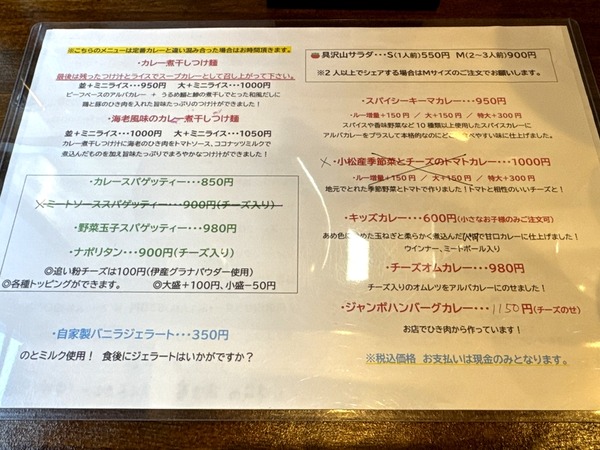 ※こちらのメニューは定番カレーと違い混み合った場合はお時間頂きます。
・カレー煮干しつけ麺
最後は残ったつけ汁とライスでスープカレーとして召し上がって下さい。
並+ミニライス・・・950円　大+ミニライス・・・1000円
ビーフベースのアルバカレー + うるめ鰯と鯵の煮干しでとった和風だしに
鶏と豚のひき肉を入れた旨味たっぷりのつけ汁ができました!
・海老風味のカレー煮干しつけ麺
並+ミニライス・・・1000円　大+ミニライス・・・1050円
カレー煮干しつけ汁に海老のひき肉をトマトソース、ココナッツミルクで
煮込んだものを加え旨味たっぷりでまろやかなつけ汁ができました!
・カレースパゲッティー・・・850円
×ミートソーススパゲッティー・・・900円(チーズ入り)
・野菜玉子スパゲッティー・・・980円
・ナポリタン・・・900円(チーズ入り)
◎追い粉チーズは100円(伊産グラナパウダー使用)
◎各種トッピングができます。　◎大盛+100円、小盛−50円
・自家製バニラジェラート・・・350円
のとミルク使用!　食後にジェラートはいかがですか?
具沢山サラダ・・・S(1人前)550円　M(2～3人前)900円
※2人以上でシェアする場合はMサイズのご注文でお願いします。
・スパイシーキーマカレー・・・950円
・ルー増量+150円 / 大+150円 / 特大+300円
スパイスや香味野菜など10種類以上使用したスパイスカレーに
アルバカレーをプラスして本格的なのにどこか食べやすい味に仕上げました。
×・小松産季節菜とチーズのトマトカレー・・・1000円
・ルー増量+150円 / 大+150円 / 特大+300円
地元でとれた季節野菜とトマトで作りました!トマトと相性のいいチーズと!
・キッズカレー・・・600円(小さなお子様のみご注文可)
あめ色に炒めた玉ねぎと柔らかく煮込んだ で甘口カレーに仕上げました!
ウインナー、ミートボール入り
・チーズオムカレー・・・980円
チーズ入りのオムレツをアルバカレーにのせました!
・ジャンボハンバーグカレー・・・1150円(チーズのせ)
お店でひき肉から作っています!
※税込価格　お支払いは現金のみとなります。